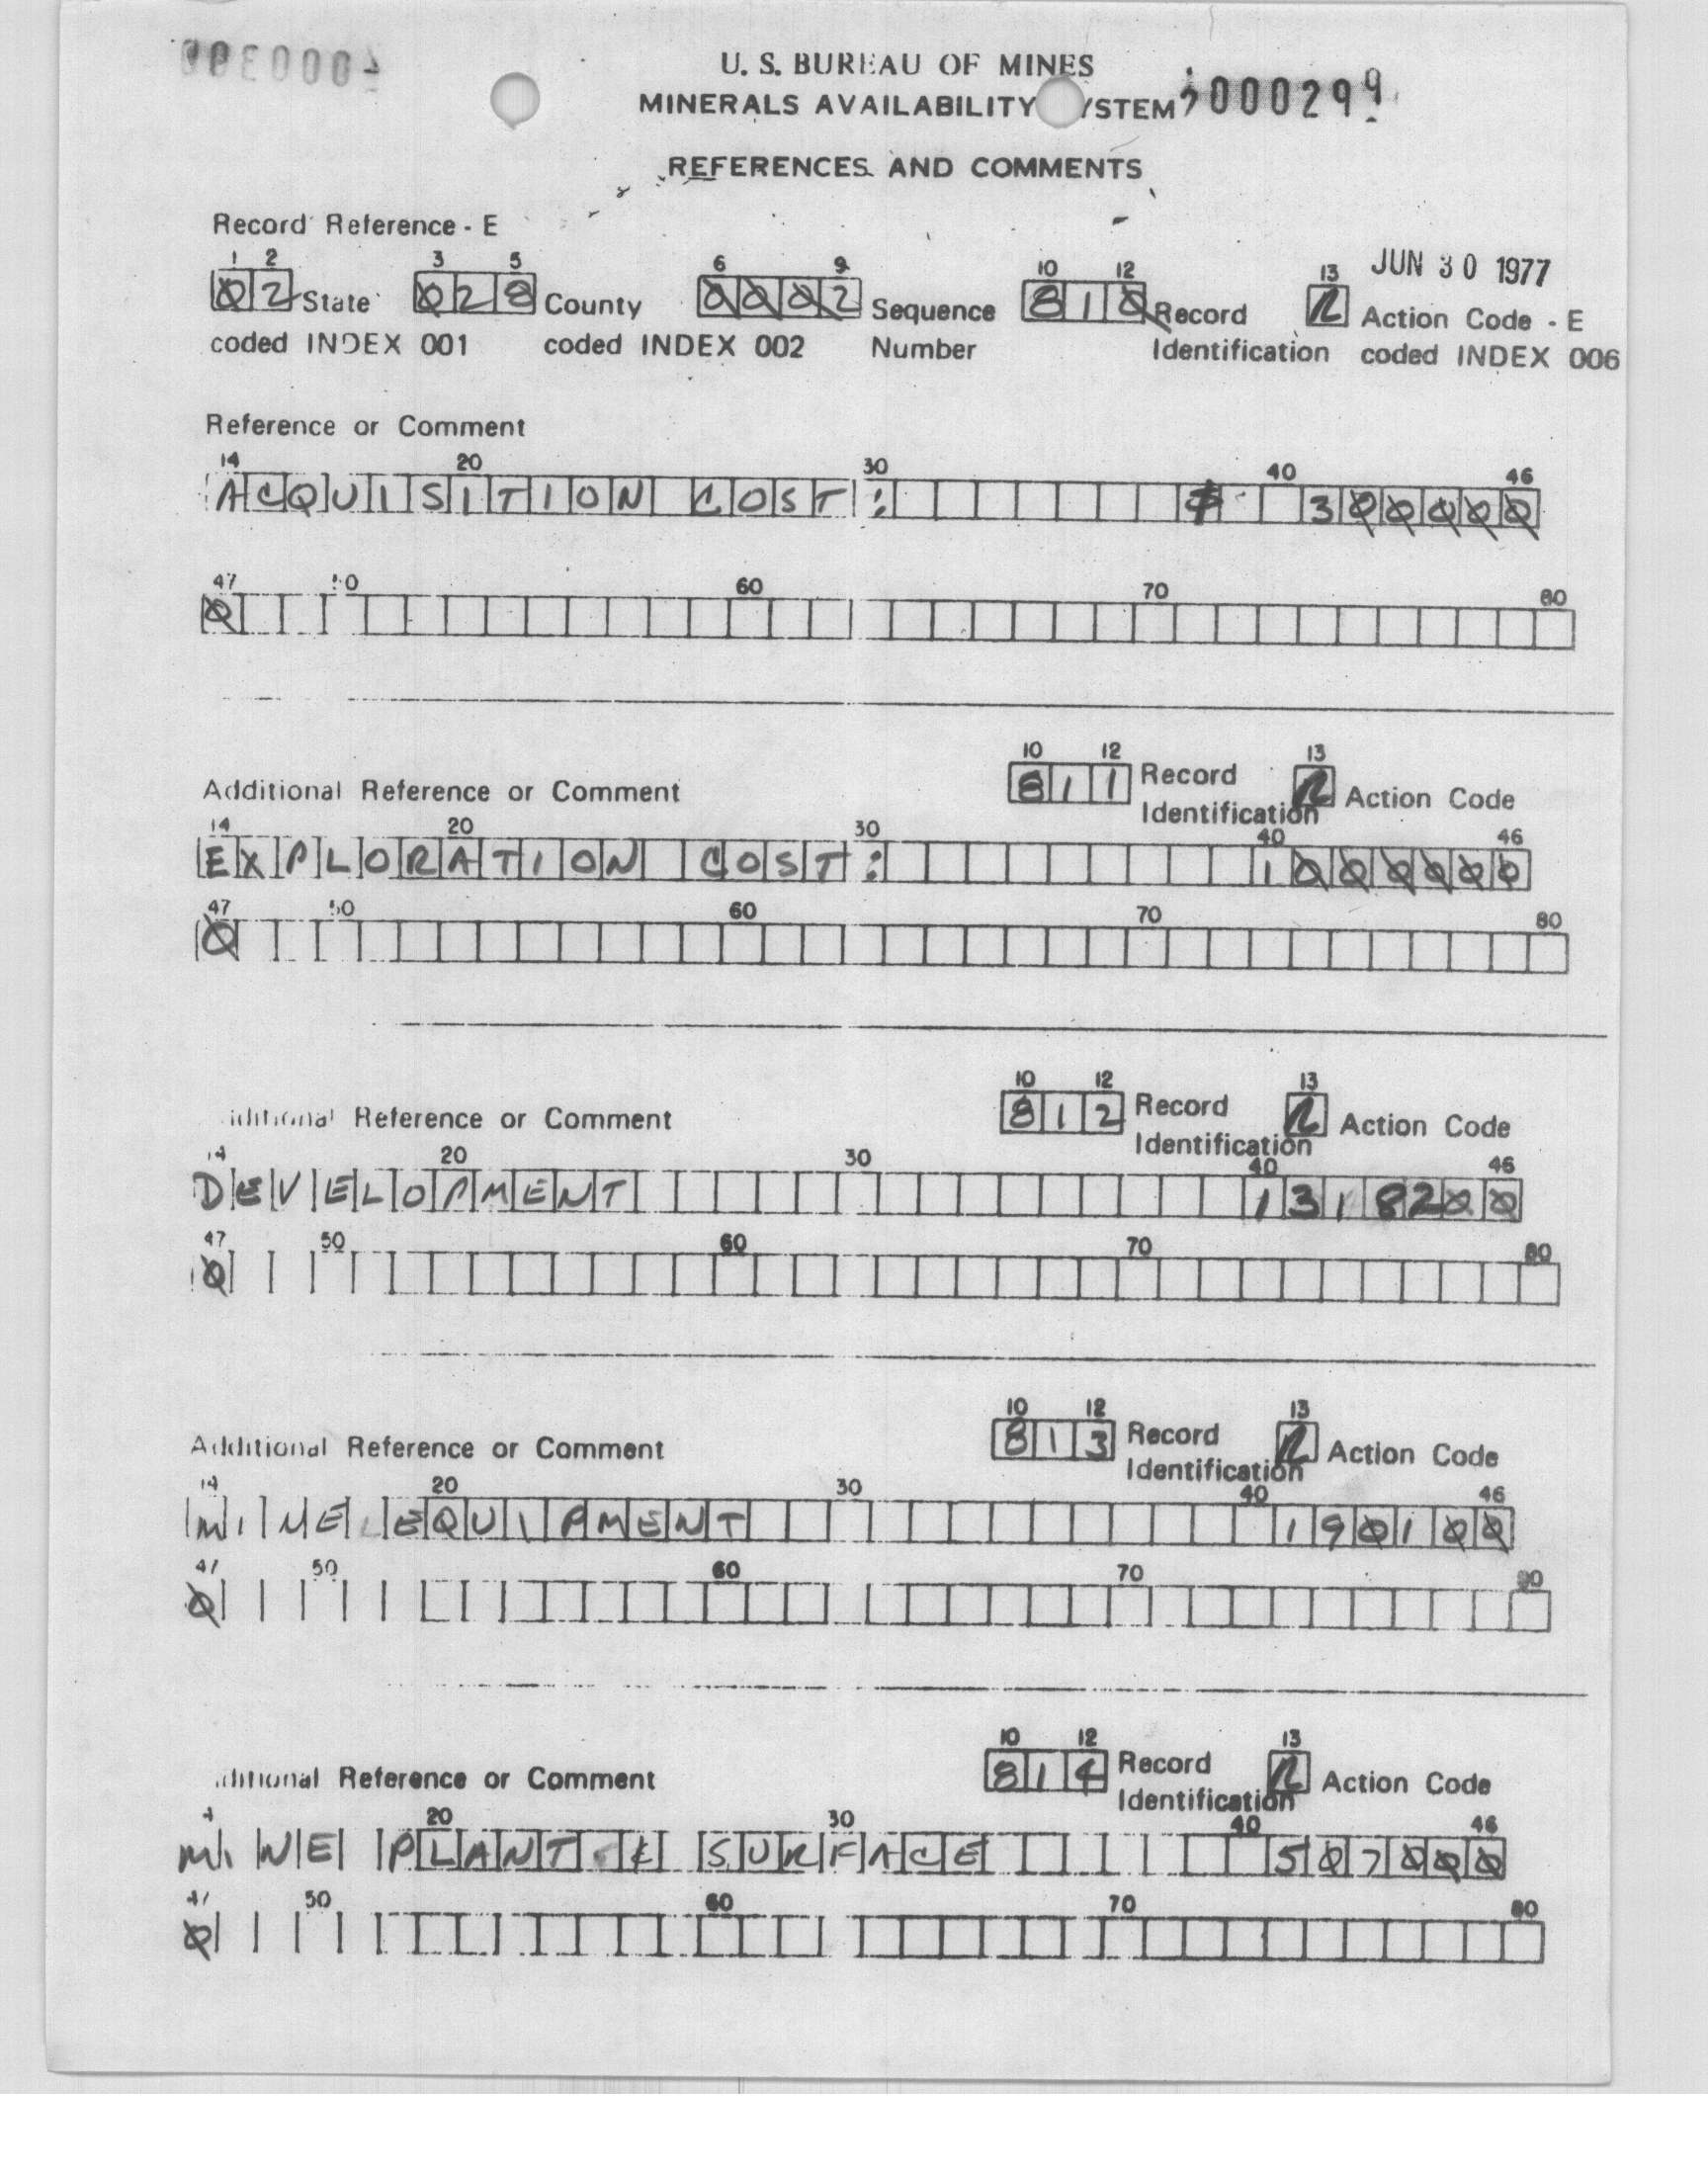 U. S. BUREAU OF MINES
MINERALS AVAILABILITY YSTEM 000299
REFERENCES AND COMMENTS
Record Reference - E
JUN 30 1977
1 2 3 5 6 9 10 12 13
02 State 028 County 0002 Sequence 810 Record Action Code - E
coded INDEX 001 coded INDEX 002 Number Identification coded INDEX 006
Reference or Comment
14 20 30 40 46
ACQUISITION COST: $ 300000
47 50 60 70 80
0
10 12 13
Additional Reference or Comment 811 Record Identification Action Code
14 20 30 40 46
EXPLORATION COST: 1000000
47 50 60 70 80
0
10 12 13
Reference or Comment 812 Record Identification Action Code
14 20 30 40 46
DEVELOPMENT 1318200
47 50 60 70 80
0
10 12 13
Additional Reference or Comment 813 Record Identification Action Code
14 20 30 40 46
MINE EQUIPMENT 190100
47 50 60 70 80
0
10 12 13
Reference or Comment 814 Record Identification Action Code
20 30 40 46
MINE PLANT & SURFACE 507000
50 60 70 80
0